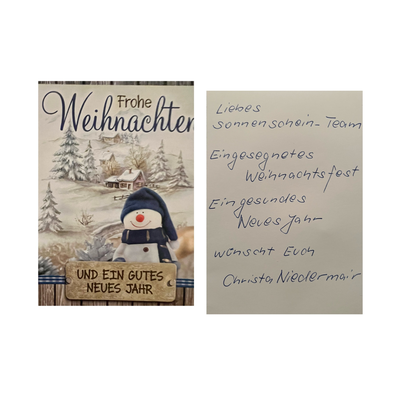 Frohe
Weihnachten
UND EIN GUTES
NEUES JAHR
Liebes
Sonnenschein-Team
Eingesegnetes
Weihnachtsfest
Ein gesundes
Neues Jahr
wünscht Euch
Christa Niedermair